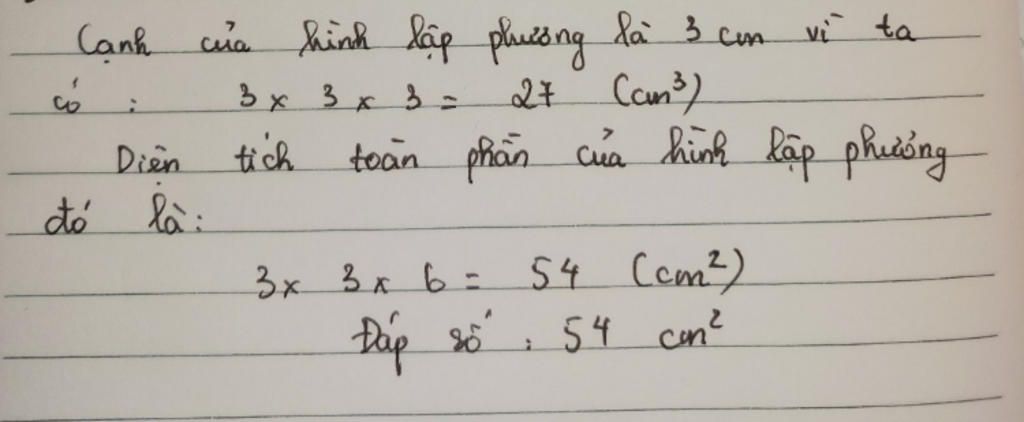 Cạnh của hình lập phương là 3 cm vì ta
có : 3 x 3 x 3 = 27 (cm³)
Diện tích toàn phần của hình lập phương
đó là:
3 x 3 x 6 = 54 (cm²)
Đáp số : 54 cm²